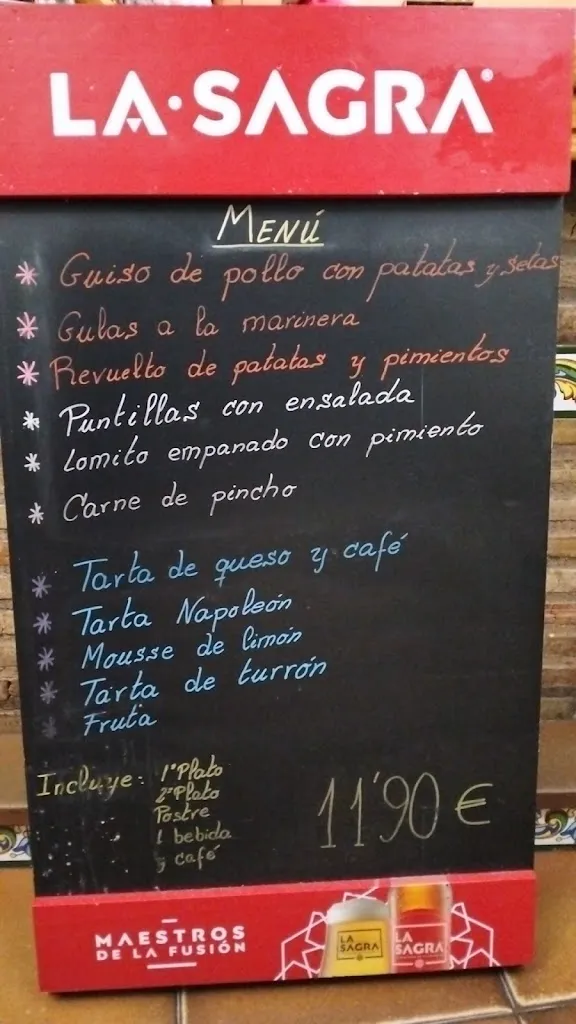 LA·SAGRA
MENÚ
* Guiso de pollo con patatas y setas
* Gulas a la marinera
* Revuelto de patatas y pimientos
* Puntillas con ensalada
* Lomito empanado con pimiento
* Carne de pincho
* Tarta de queso y café
* Tarta Napoleón
* Mousse de limón
* Tarta de turrón
* Fruta
Incluye: 1º Plato
2º Plato
Postre
1 bebida
y café
11'90 €
MAESTROS
DE LA FUSIÓN
LA
SAGRA
LA
SAGRA